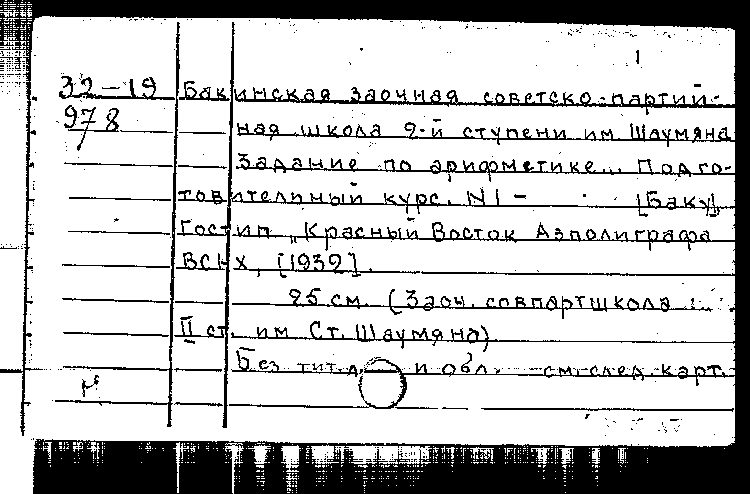 1
32-19 Бакинская заочная советско-партий-
978 ная школа 2-й ступени им Шаумяна
Задание по арифметике... Подго-
товителпный курс. N1 - [Баку],
Гостип „Красный Восток Азполиграфа
ВСНХ, [1932].
25 см. (Заоч. совпартшкола
II ст. им Ст. Шаумяна)
Без тит. л. и обл. - см. след. карт.